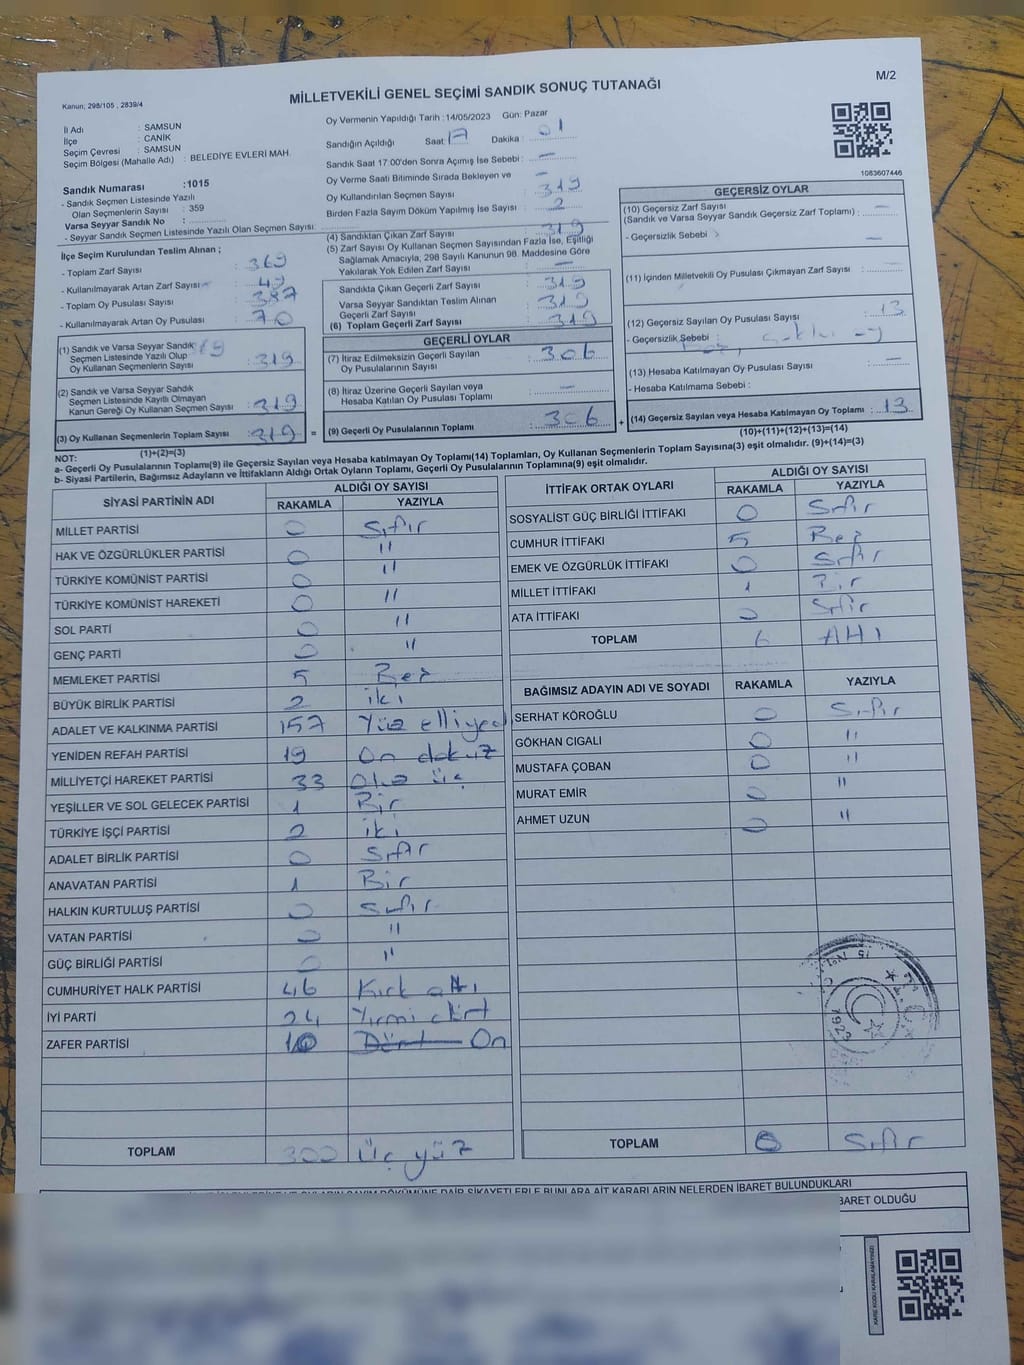 Kanun; 298/105 , 2839/4
MİLLETVEKİLİ GENEL SEÇİMİ SANDIK SONUÇ TUTANAĞI
M/2
İl Adı : SAMSUN
İlçe : CANİK
Seçim Çevresi : SAMSUN
Seçim Bölgesi (Mahalle Adı) : BELEDİYE EVLERİ MAH.
Sandık Numarası :1015
- Sandık Seçmen Listesinde Yazılı
Olan Seçmenlerin Sayısı : 359
Varsa Seyyar Sandık No :
- Seyyar Sandık Seçmen Listesinde Yazılı Olan Seçmen Sayısı:
İlçe Seçim Kurulundan Teslim Alınan ;
- Toplam Zarf Sayısı : 369
- Kullanılmayarak Artan Zarf Sayısı :
- Toplam Oy Pusulası Sayısı : 387
- Kullanılmayarak Artan Oy Pusulası : 70
(1) Sandık ve Varsa Seyyar Sandık
Seçmen Listesinde Yazılı Olup
Oy Kullanan Seçmenlerin Sayısı : 319
(2) Sandık ve Varsa Seyyar Sandık
Seçmen Listesinde Kayıtlı Olmayan
Kanun Gereği Oy Kullanan Seçmen Sayısı : 319
(3) Oy Kullanan Seçmenlerin Toplam Sayısı : 319
(1)+(2)=(3)
Oy Vermenin Yapıldığı Tarih :14/05/2023 Gün: Pazar
Sandığın Açıldığı Saat 17 Dakika : 01
Sandık Saat 17:00'den Sonra Açımış İse Sebebi : —
Oy Verme Saati Bitiminde Sırada Bekleyen ve —
Oy Kullandırılan Seçmen Sayısı : 319
Birden Fazla Sayım Döküm Yapılmış İse Sayısı : 2
(4) Sandıktan Çıkan Zarf Sayısı : 319
(5) Zarf Sayısı Oy Kullanan Seçmen Sayısından Fazla İse, Eşitliği
Sağlamak Amacıyla, 298 Sayılı Kanunun 98. Maddesine Göre
Yakılarak Yok Edilen Zarf Sayısı : —
Sandıkta Çıkan Geçerli Zarf Sayısı : 319
Varsa Seyyar Sandıktan Teslim Alınan
Geçerli Zarf Sayısı : 319
(6) Toplam Geçerli Zarf Sayısı : 319
GEÇERLİ OYLAR
(7) İtiraz Edilmeksizin Geçerli Sayılan
Oy Pusulalarının Sayısı : 306
(8) İtiraz Üzerine Geçerli Sayılan veya
Hesaba Katılan Oy Pusulası Toplamı : —
= (9) Geçerli Oy Pusulalarının Toplamı : 306
1083607446
GEÇERSİZ OYLAR
(10) Geçersiz Zarf Sayısı
(Sandık ve Varsa Seyyar Sandık Geçersiz Zarf Toplamı) : —
- Geçersizlik Sebebi : —
(11) İçinden Milletvekili Oy Pusulası Çıkmayan Zarf Sayısı : —
(12) Geçersiz Sayılan Oy Pusulası Sayısı : 13
- Geçersizlik Sebebi :
(13) Hesaba Katılmayan Oy Pusulası Sayısı : —
- Hesaba Katılmama Sebebi :
+ (14) Geçersiz Sayılan veya Hesaba Katılmayan Oy Toplamı : 13
(10)+(11)+(12)+(13)=(14)
NOT:
a- Geçerli Oy Pusulalarının Toplamı(9) ile Geçersiz Sayılan veya Hesaba katılmayan Oy Toplamı(14) Toplamları, Oy Kullanan Seçmenlerin Toplam Sayısına(3) eşit olmalıdır. (9)+(14)=(3)
b- Siyasi Partilerin, Bağımsız Adayların ve İttifakların Aldığı Ortak Oyların Toplamı, Geçerli Oy Pusulalarının Toplamına(9) eşit olmalıdır.
SİYASİ PARTİNİN ADI ALDIĞI OY SAYISI
RAKAMLA YAZIYLA
MİLLET PARTİSİ 0 Sıfır
HAK VE ÖZGÜRLÜKLER PARTİSİ 0 "
TÜRKİYE KOMÜNİST PARTİSİ 0 "
TÜRKİYE KOMÜNİST HAREKETİ 0 "
SOL PARTİ 0 "
GENÇ PARTİ 0 "
MEMLEKET PARTİSİ 5 Beş
BÜYÜK BİRLİK PARTİSİ 2 iki
ADALET VE KALKINMA PARTİSİ 157 Yüz elliyedi
YENİDEN REFAH PARTİSİ 19 On dokuz
MİLLİYETÇİ HAREKET PARTİSİ 33 Otuz üç
YEŞİLLER VE SOL GELECEK PARTİSİ 1 Bir
TÜRKİYE İŞÇİ PARTİSİ 2 iki
ADALET BİRLİK PARTİSİ 0 Sıfır
ANAVATAN PARTİSİ 1 Bir
HALKIN KURTULUŞ PARTİSİ 0 Sıfır
VATAN PARTİSİ 0 "
GÜÇ BİRLİĞİ PARTİSİ 0 "
CUMHURİYET HALK PARTİSİ 46 Kırk altı
İYİ PARTİ 24 Yırmi dört
ZAFER PARTİSİ 10 Dört On
TOPLAM 300 Üç yüz
İTTİFAK ORTAK OYLARI ALDIĞI OY SAYISI
RAKAMLA YAZIYLA
SOSYALİST GÜÇ BİRLİĞİ İTTİFAKI 0 Sıfır
CUMHUR İTTİFAKI 5 Beş
EMEK VE ÖZGÜRLÜK İTTİFAKI 0 Sıfır
MİLLET İTTİFAKI 1 Bir
ATA İTTİFAKI 0 Sıfır
TOPLAM 6 Altı
BAĞIMSIZ ADAYIN ADI VE SOYADI RAKAMLA YAZIYLA
SERHAT KÖROĞLU 0 Sıfır
GÖKHAN CIGALI 0 "
MUSTAFA ÇOBAN 0 "
MURAT EMİR 0 "
AHMET UZUN 0 "
TOPLAM 0 Sıfır
DAİR ŞİKAYETLERLE BUNLARA AİT KARARLARIN NELERDEN İBARET BULUNDUKLARI
BARET OLDUĞU
KARE KODU KARALAMAYINIZ!